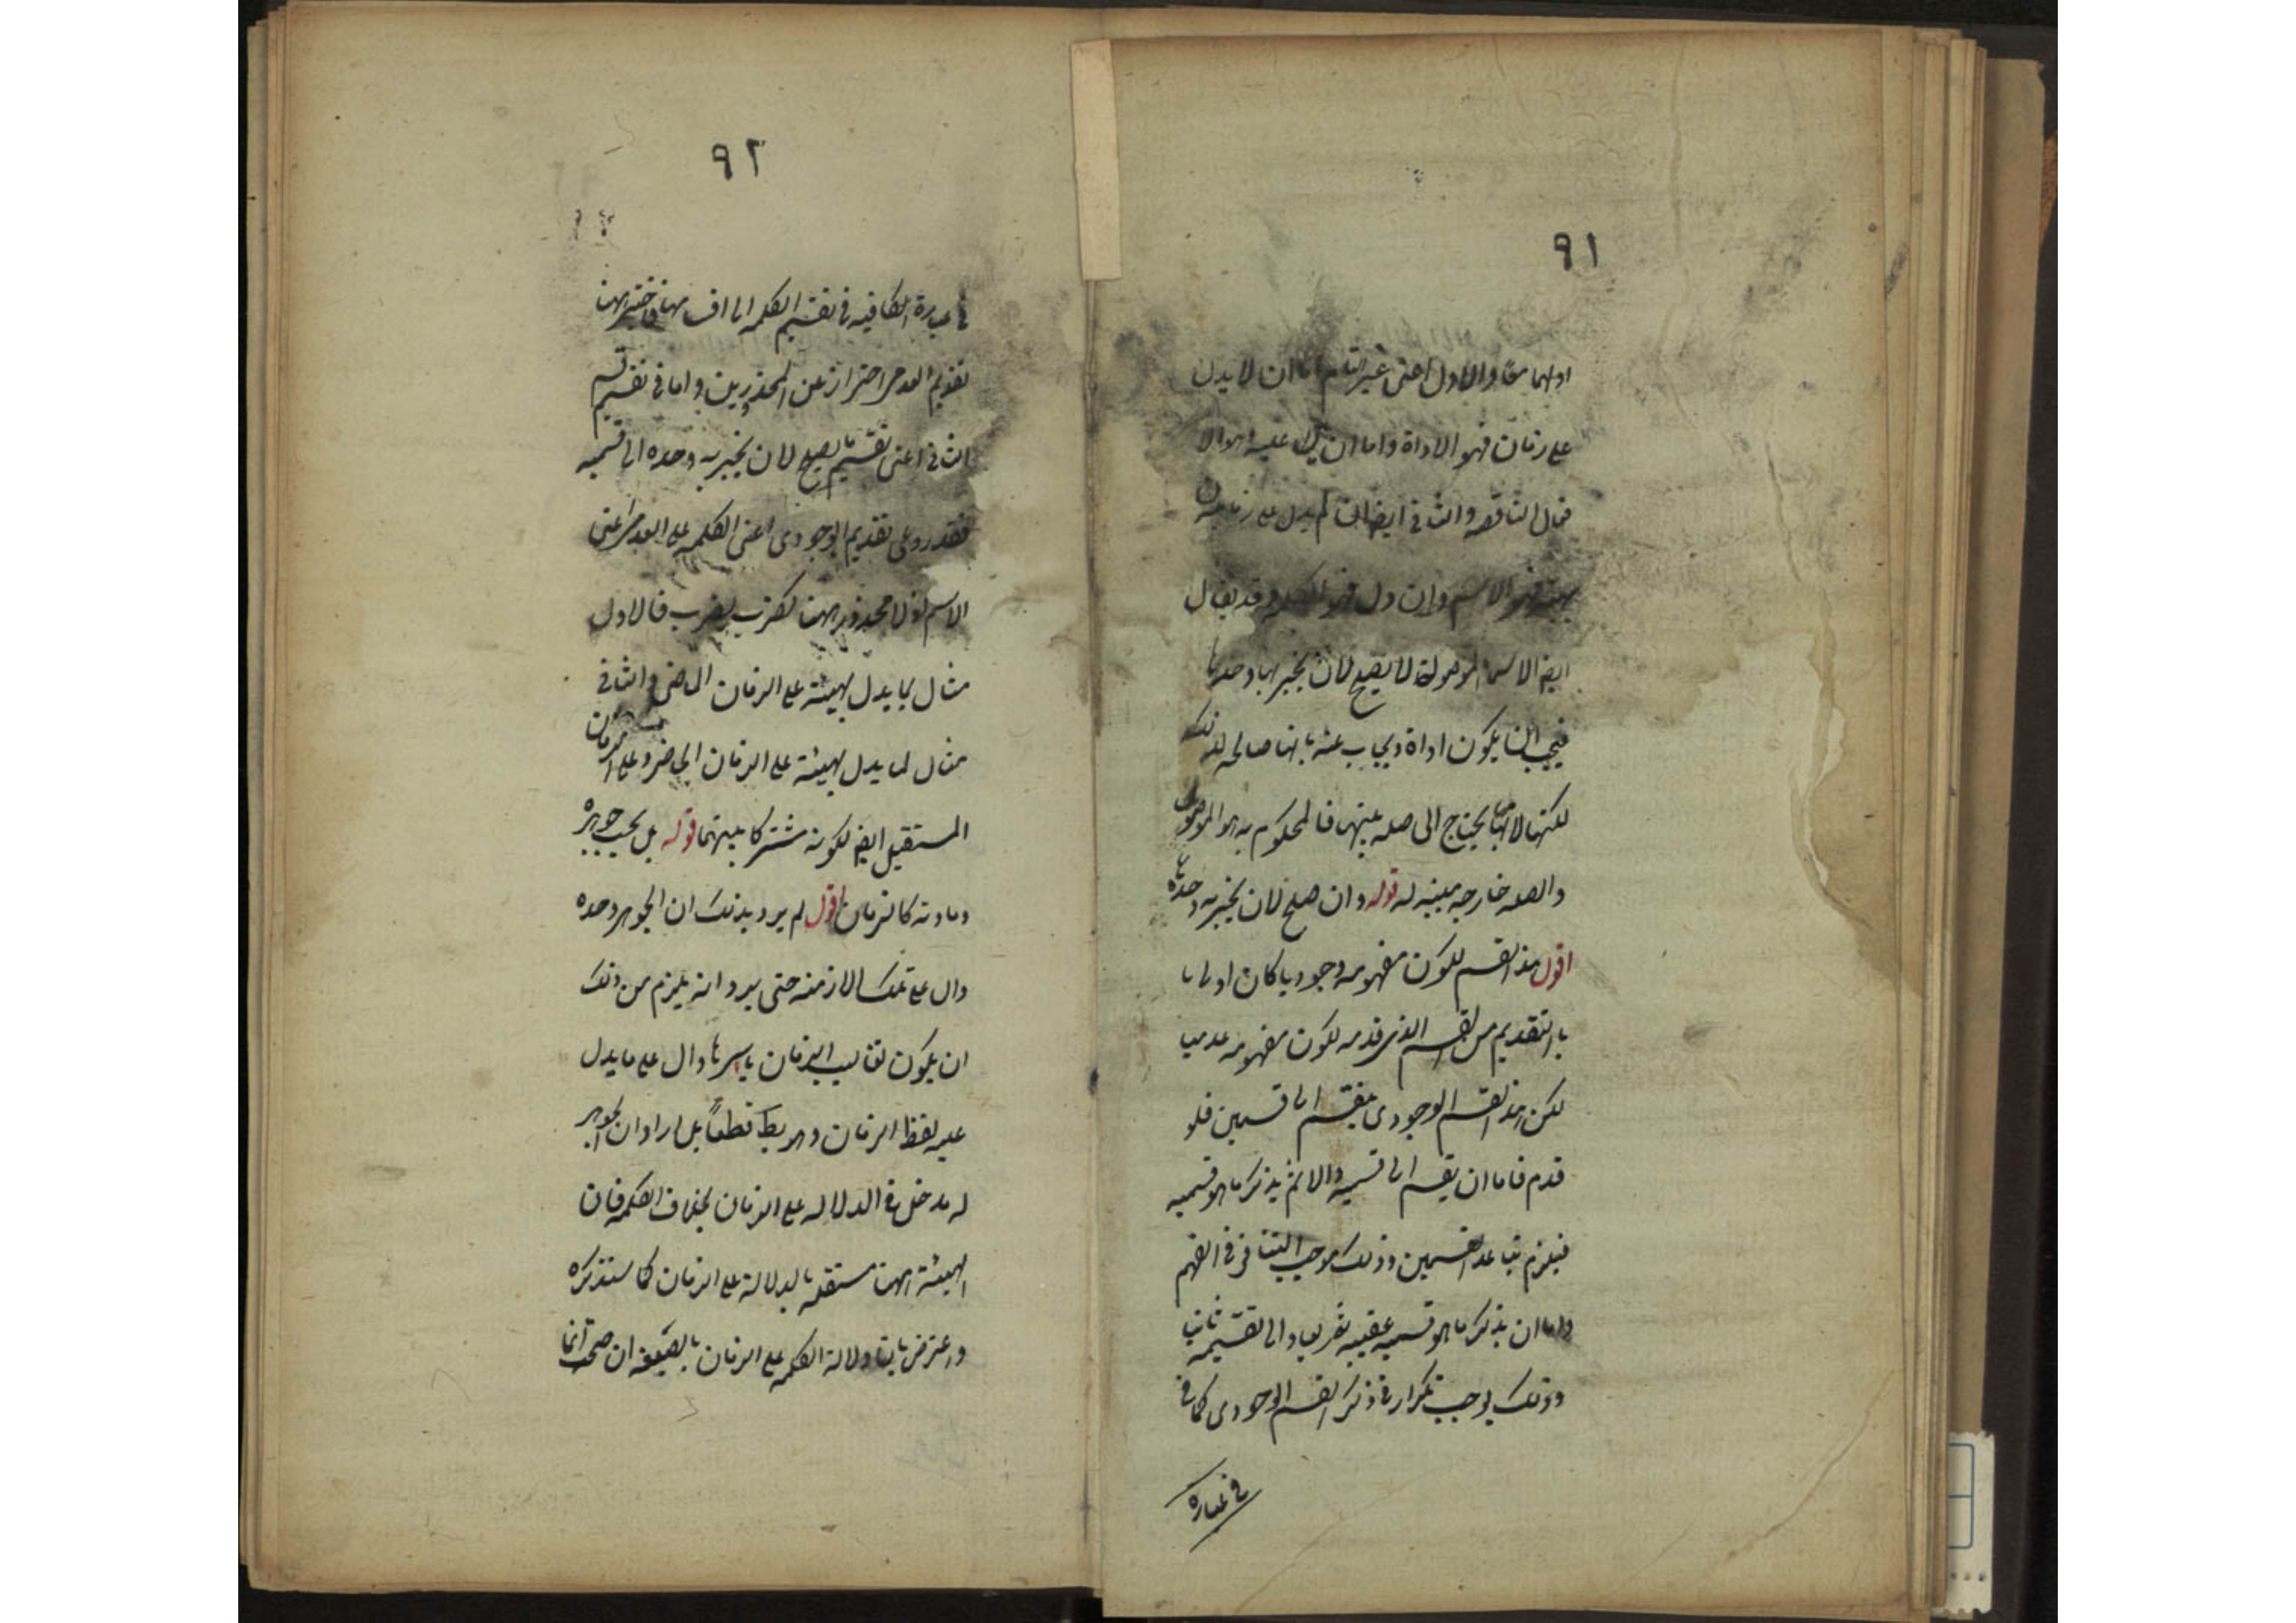 ٩١
اولهما معا والاول اعنى غير التام اما ان لا يدل
على زمان فهو الاداة واما ان يدل عليه وهو الا
فعال الناقصه والثانى ايضا ان لم يدل على زمان
بهيئته فهو الاسم وان دل فهو الكلمه وقد يقال
ايضا الاسماء الموصولة لا يصح لان يخبر بها وحدها
فيجب ان يكون اداة ويجاب عنه بانها صالحه لذلك
لكنها لابهامها يحتاج الى صله يبينها فالمحكوم به هو الموصول
والصله خارجه مبينه له قوله وان صلح لان يخبر به وحده
اقول هذا القسم لكون مفهومه وجوديا كان اولى
بالتقديم من القسم الذى قدمه لكون مفهومه عدميا
لكن هذا القسم الوجودى ينقسم الى قسمين فلو
قدم فاما ان يقسم الى قسميه والا ثم يذكر ما هو قسيمه
فيلزم تباعد القسمين وذلك يوجب التنافر فى الفهم
واما ان يذكر ما هو قسيمه عقيبه ثم يعاد الى تقسيمه ثانيا
وذلك يوجب تكرار فى ذكر القسم الوجودى كما فى
فى عباره
٩٢
فى عبارة الكافيه فى تقسيم الكلمه الى اقسامها فاختير ههنا
تقديم العدمى احتراز عن المحذورين واما فى تقسيم قسم
الثانى اعنى تقسيم ما يصلح لان يخبر به وحده الى قسميه
فقد روعى تقديم الوجودى اعنى الكلمه على العدمى اعنى
الاسم اذ لا محذور ههنا كضرب يضرب فالاول
مثال لما يدل بهيئته على الزمان الماضى والثانى
مثال لما يدل بهيئته على الزمان الحاضر وعلى الزمان
المستقبل ايضا لكونه مشتركا بينهما قوله بل بحسب جوهره
ومادته كالزمان اقول لم يرد بذلك ان الجوهر وحده
دال على تلك الازمنه حتى يرد انه يلزم من ذلك
ان يكون تقاليب الزمان باسرها دال على ما يدل
عليه لفظ الزمان وهو بط قطعاً بل اراد ان الجوهر
له مدخل فى الدلاله على الزمان بخلاف الكلمه فان
الهيئة ههنا مستقله بالدلالة على الزمان كما ستذكره
واعترض بان دلالة الكلمه على الزمان بالصيغه ان صحت فانما